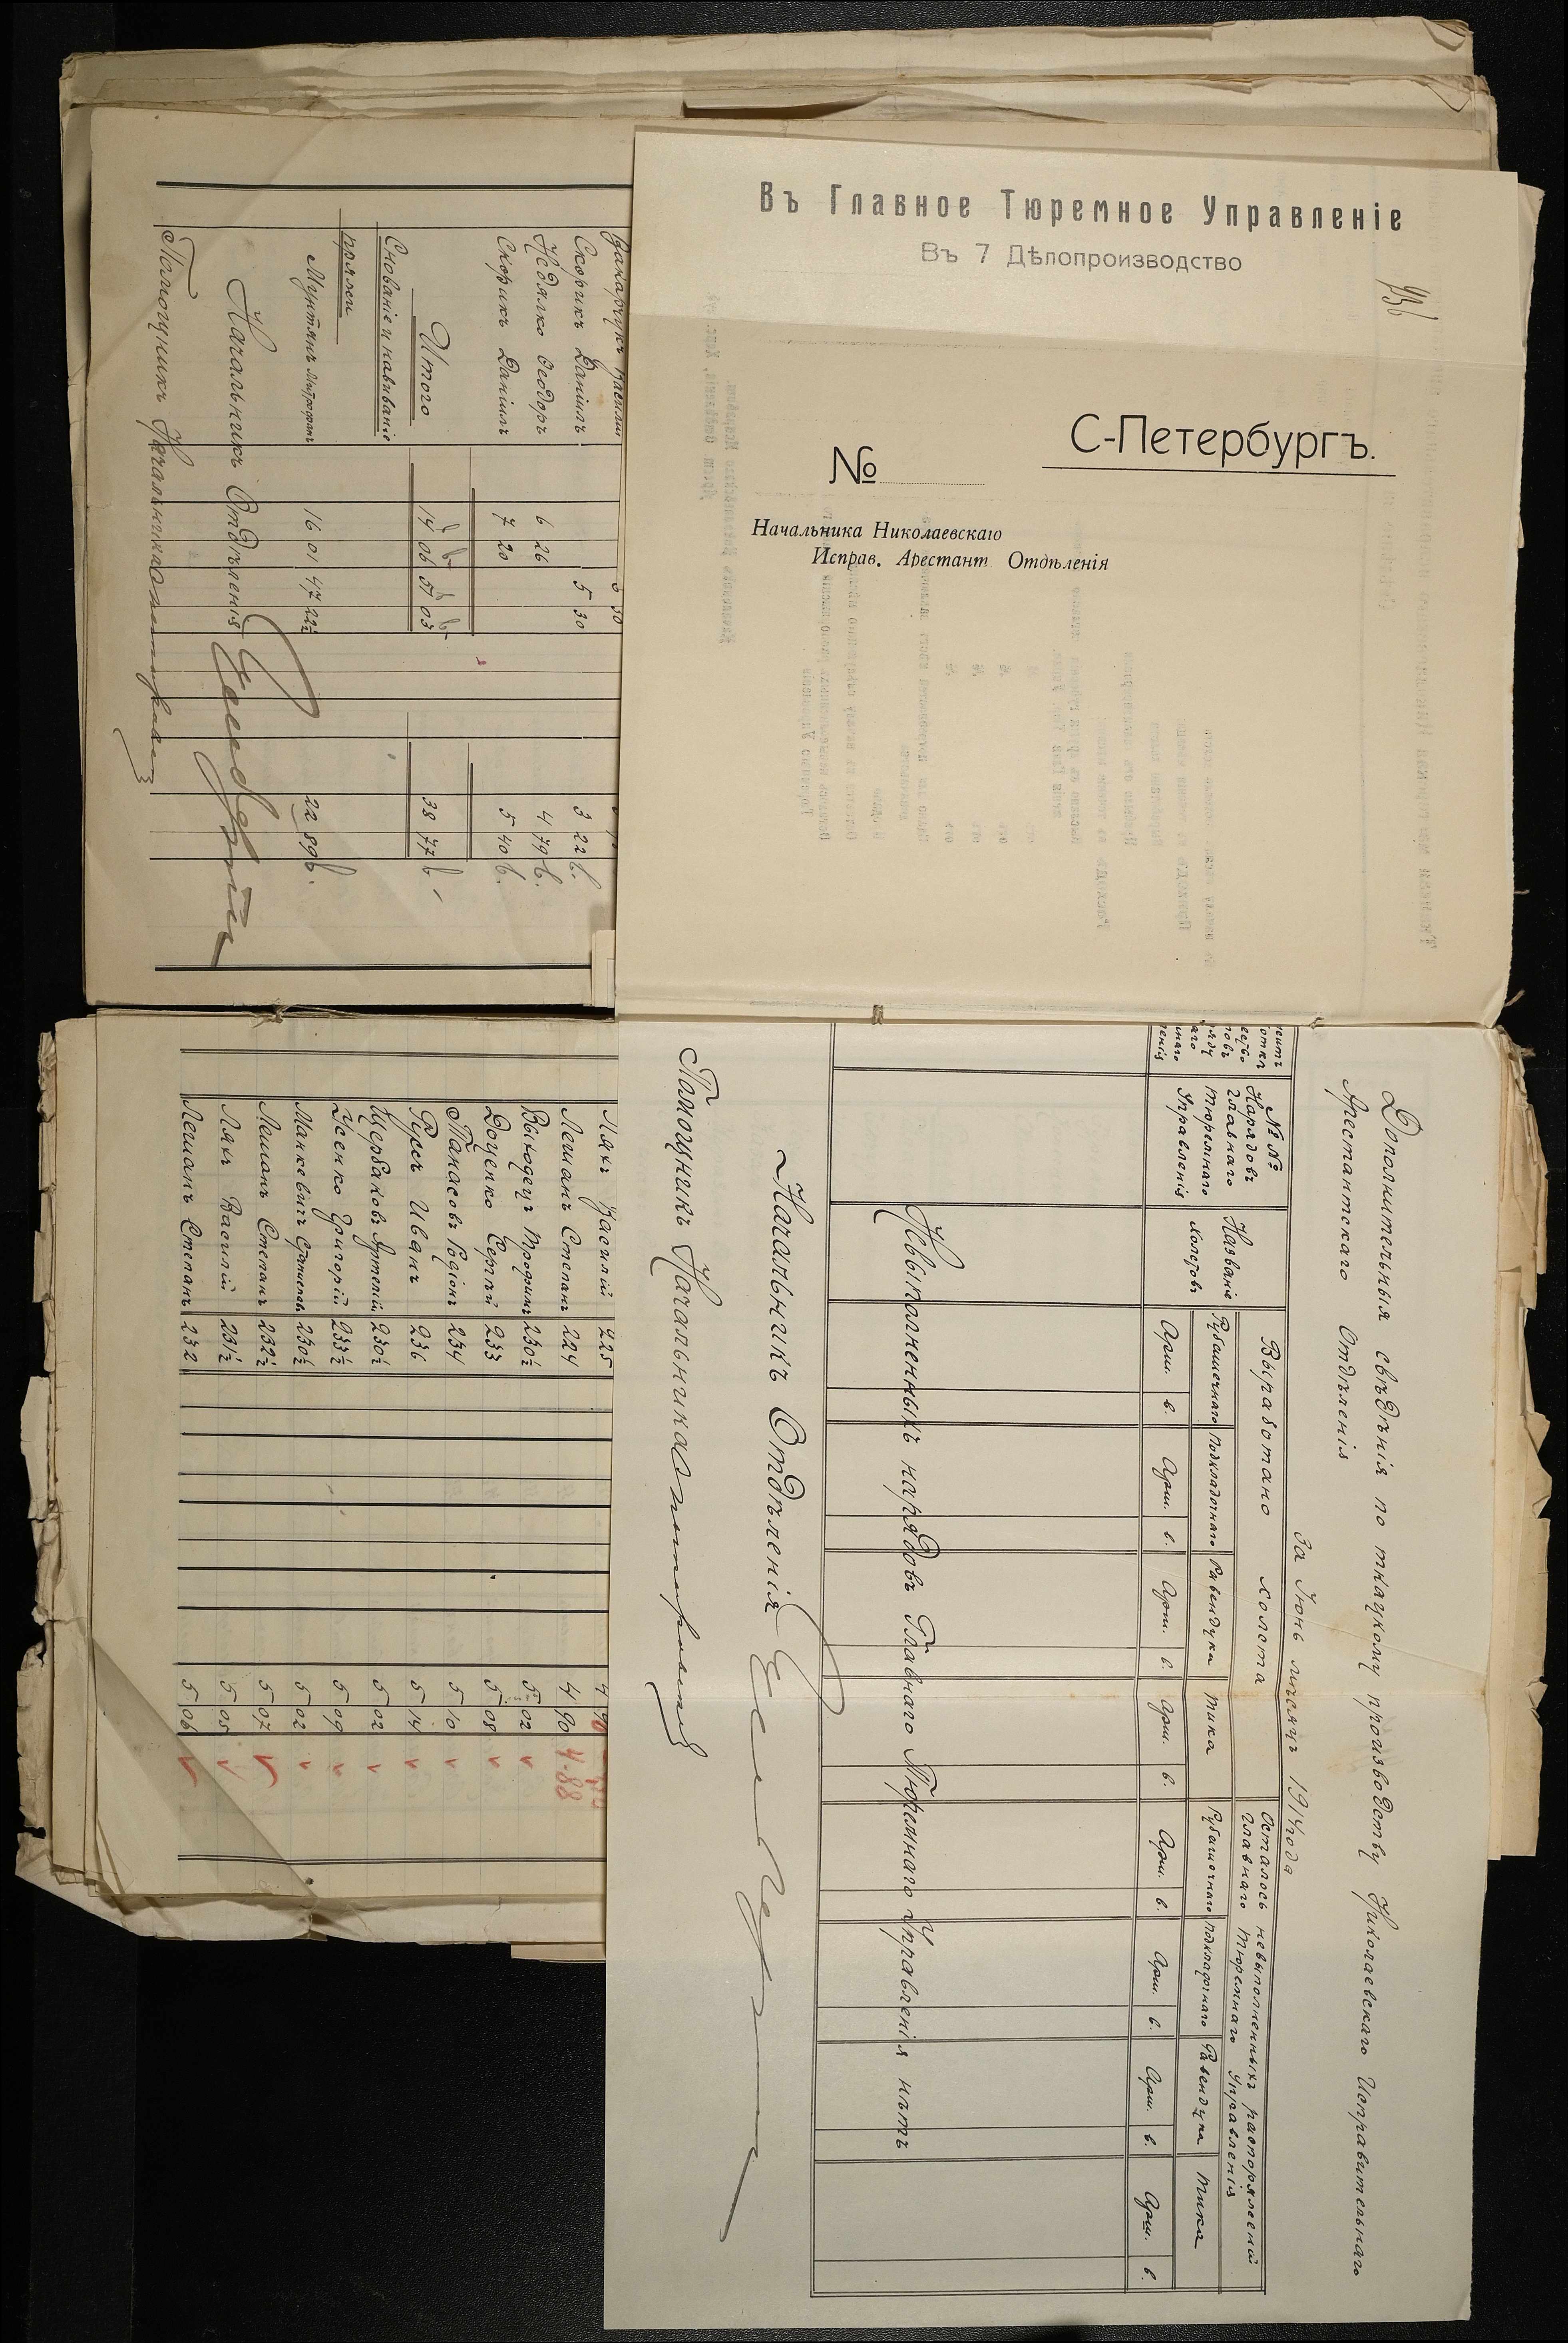 Въ Главное Тюремное Управленіе
Въ 7 Дѣлопроизводство
С-Петербургъ.
№
Начальника Николаевскаго
Исправ. Арестант. Отдѣленія
Скорикъ Даніилъ 5 30 3 22
Недялко Ѳеодоръ 6 26 4 79
Скорикъ Даніилъ 7 20 5 40
Итого 14 06 51 03 38 77
Снованіе и навиваніе
пряжи
Мунтянъ Митрофанъ 16 01 47 22½ 22 89
Начальникъ Отдѣленія
Помощникъ Начальника
Дополнительныя свѣдѣнія по ткацкому производству Николаевскаго Исправительнаго
Арестантскаго Отдѣленія
За Іюнь мѣсяцъ 1914 года
№№
Нарядовъ
Главнаго
Тюремнаго
Управленія
Названіе
холстовъ
Выработано холста
Осталось невыполненныхъ распоряженій
Главнаго Тюремнаго Управленія
Рубашечнаго Подкладочнаго Равендука Тика Рубашечнаго Подкладочнаго Равендука Тика
Арш. в. Арш. в. Арш. в. Арш. в. Арш. в. Арш. в. Арш. в. Арш. в.
Невыполненныхъ нарядовъ Главнаго Тюремнаго Управленія нѣтъ
Начальникъ Отдѣленія
Помощникъ Начальника
Ляхъ Василій 225
Лешанъ Степанъ 224 4 90 4.88
Выходецъ Трофимъ 230½ 5 02
Доценко Сергѣй 233 5 08
Танасовъ Родіонъ 234 5 10
Русъ Иванъ 236 5 14
Щербаковъ Артемій 230½ 5 02
Усенко Григорій 233½ 5 09
Манкевичъ Станиславъ 230½ 5 02
Лешанъ Степанъ 232½ 5 07
Ляхъ Василій 231½ 5 05
Лешанъ Степанъ 232 5 06